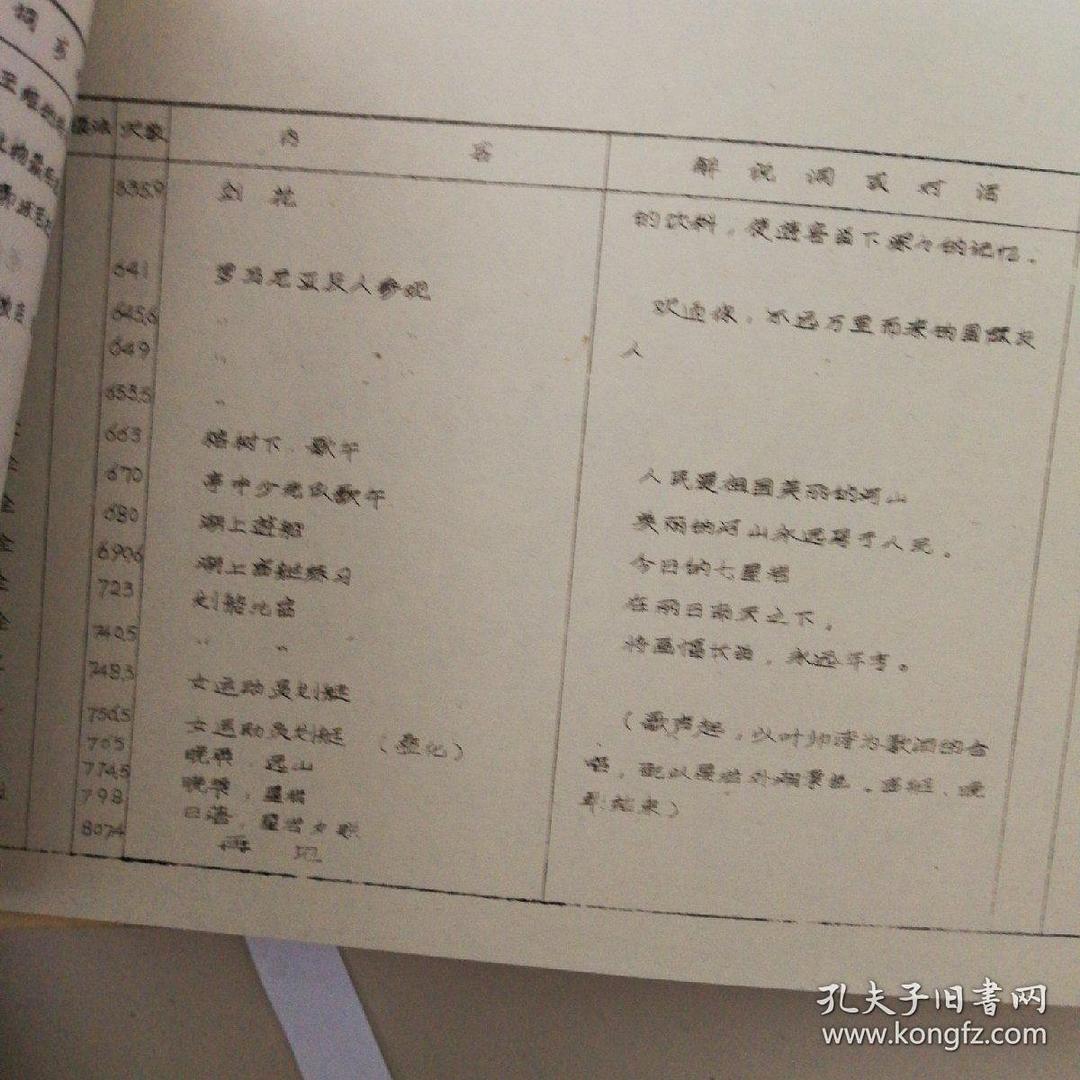 摄法 尺数 内 容 解说词或对话
635.9 剑花
的饮料，使游客留下深々的记忆。
641 罗马尼亚友人参观
645.6 〃 〃 欢迎你，不远万里而来的国际友
649 〃 人
653.5 〃
663 榕树下．歌午
670 亭中少先队歌午 人民爱祖国美丽的河山
680 湖上游船 美丽的河山永远属于人民。
690.6 湖上赛艇练习 今日的七星岩
723 划船比赛 在丽日南天之下，
740.5 〃 〃 将画幅长留，永远年青。
748.3 女运动员划艇
756.5 女运动员划艇（叠化） （歌声起，以叶帅诗为歌词的合
765 晚霞．远山 唱，配以星岩外湖景色。
774.5 晚霞，星岩
798 日落，星岩夕照 结束）
807.4 再见
孔夫子旧書网
www.kongfz.com